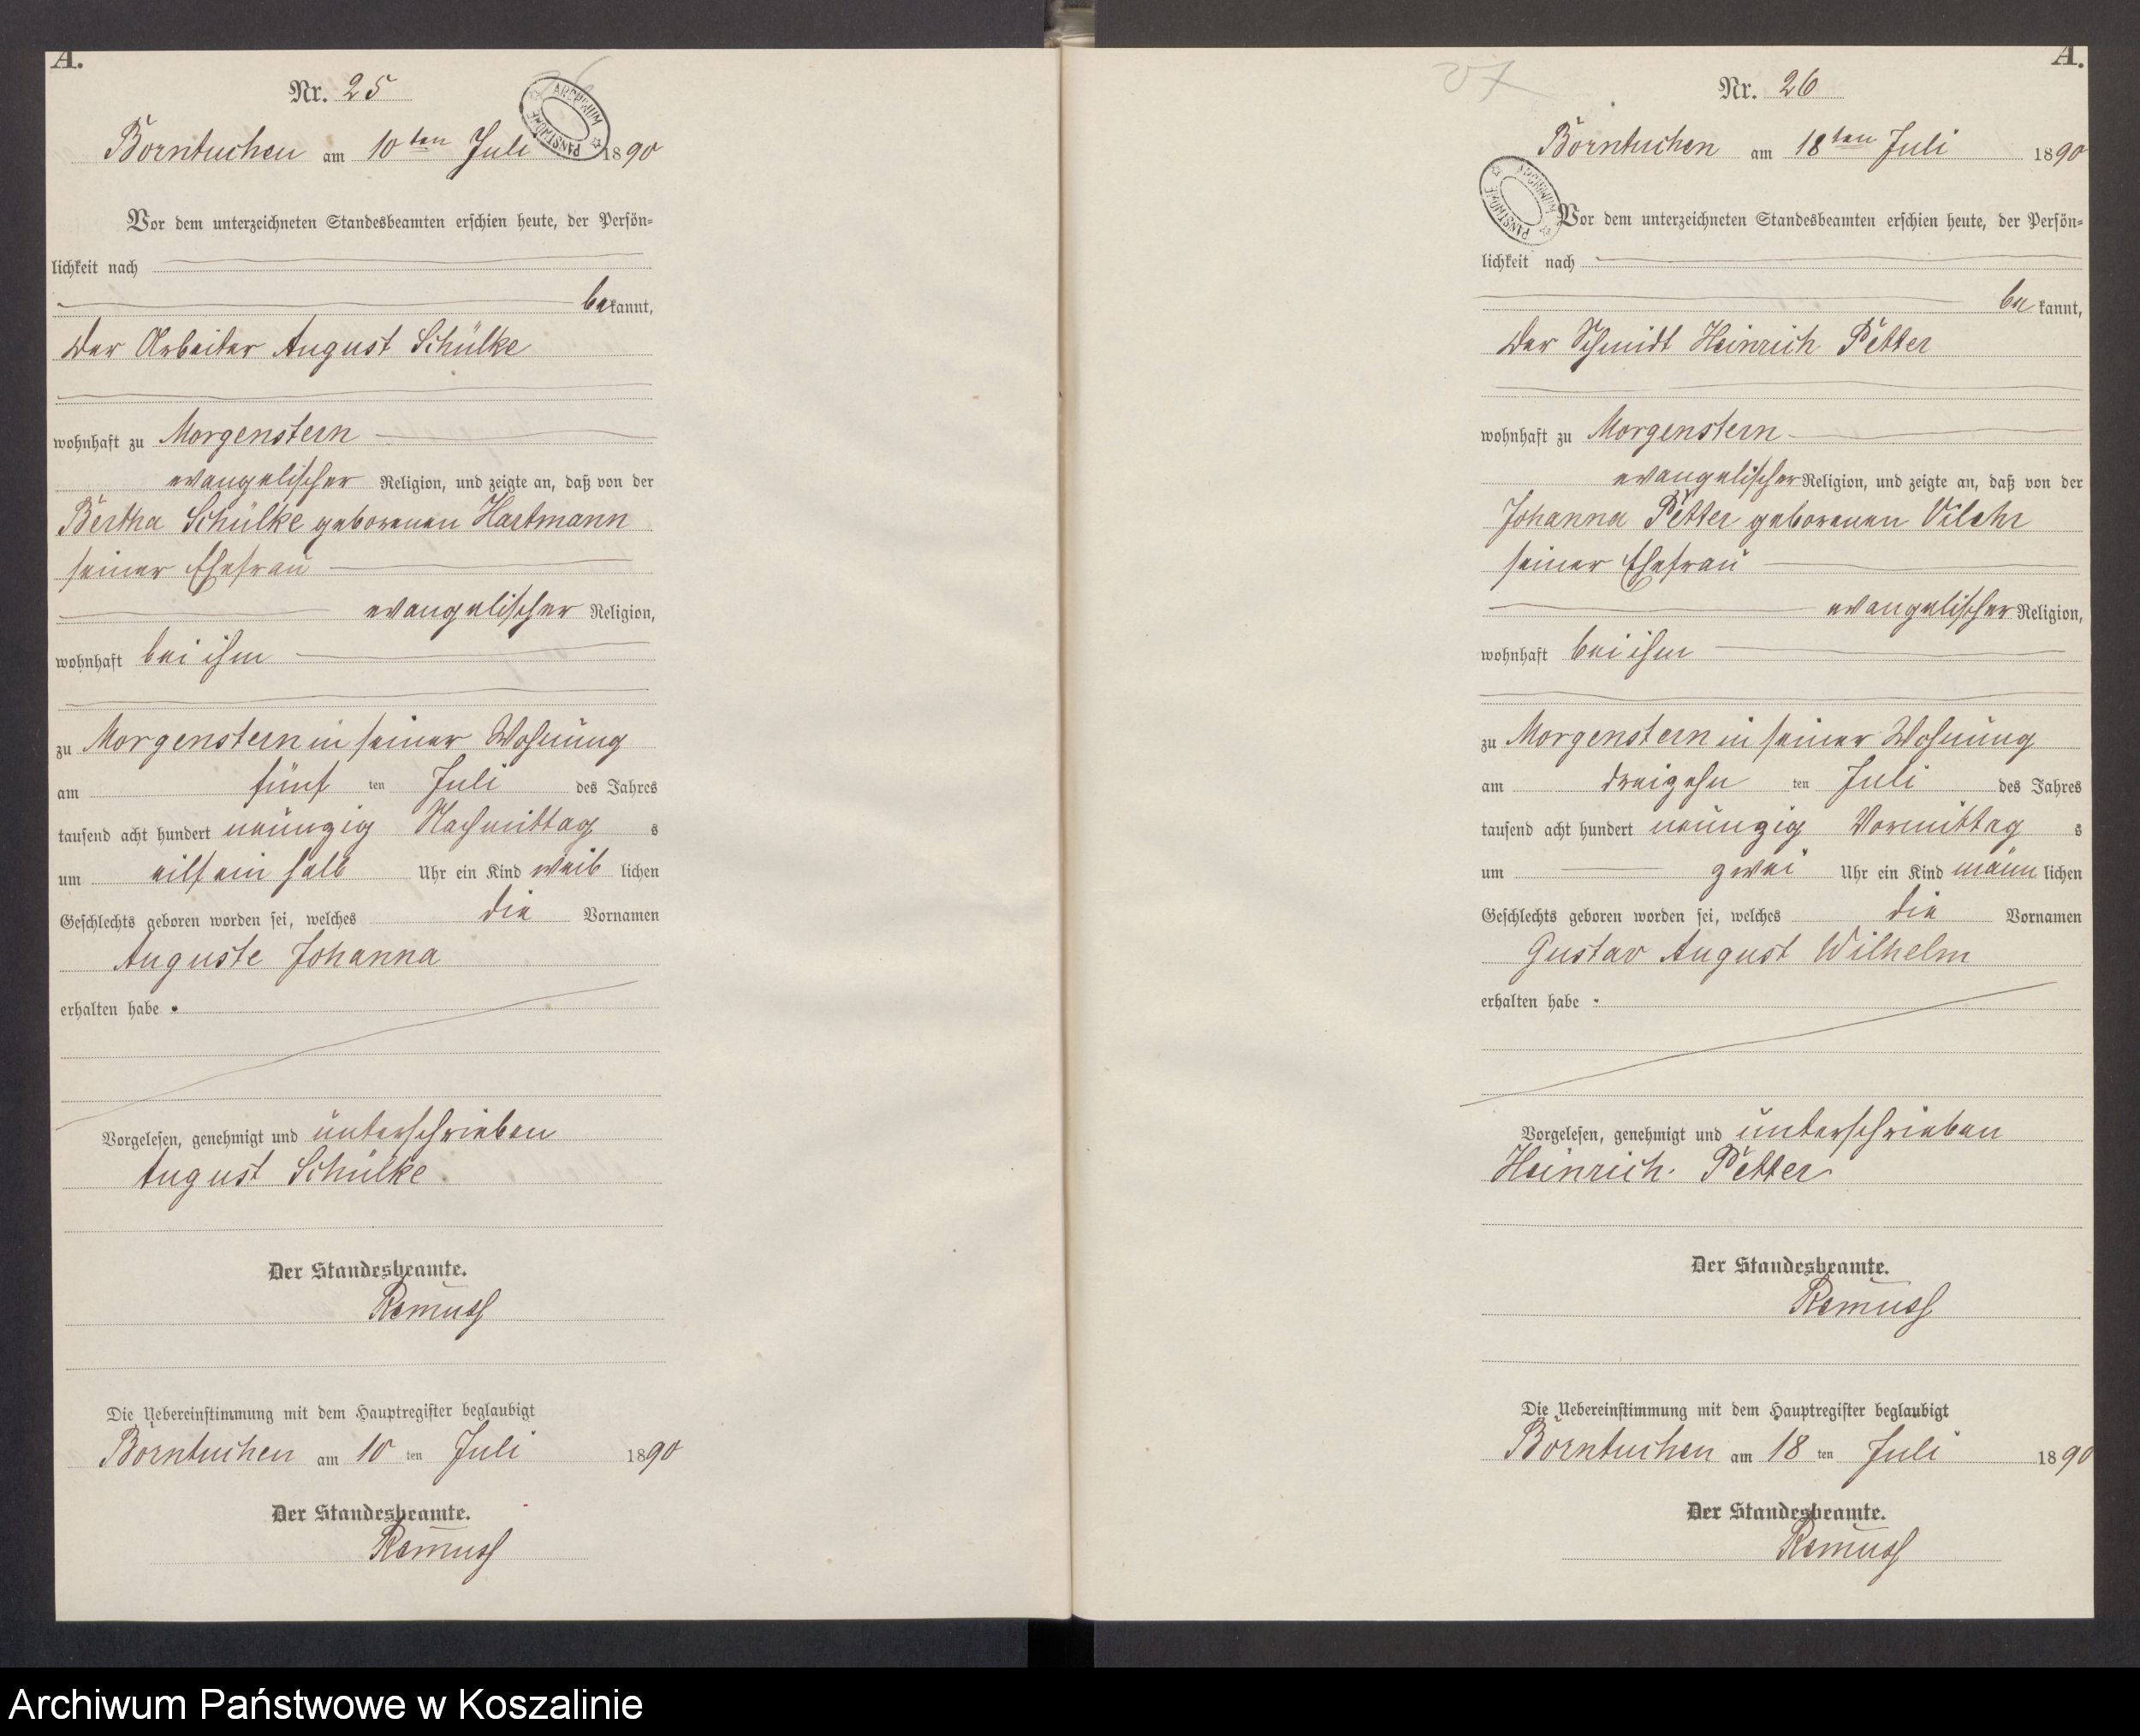 A.
Nr. 25
ARCHIWUM PAŃSTWOWE
Borntuchen am 10ten Juli 1890
Vor dem unterzeichneten Standesbeamten erschien heute, der Persön=
lichkeit nach
bekannt,
der Arbeiter August Schülke
wohnhaft zu Morgenstern
evangelischer Religion, und zeigte an, daß von der
Bertha Schülke geborenen Hartmann
seiner Ehefrau
evangelischer Religion,
wohnhaft bei ihm
zu Morgenstern in seiner Wohnung
am fünf ten Juli des Jahres
tausend acht hundert neunzig Nachmittag s
um eilf ein halb Uhr ein Kind weib lichen
Geschlechts geboren worden sei, welches die Vornamen
Auguste Johanna
erhalten habe.
Vorgelesen, genehmigt und unterschrieben
August Schülke
Der Standesbeamte.
Remuss
Die Uebereinstimmung mit dem Hauptregister beglaubigt
Borntuchen am 10 ten Juli 1890
Der Standesbeamte.
Remuss
A.
Nr. 26
Borntuchen am 18ten Juli 1890
ARCHIWUM PAŃSTWOWE
Vor dem unterzeichneten Standesbeamten erschien heute, der Persön=
lichkeit nach
be kannt,
der Schmidt Heinrich Petter
wohnhaft zu Morgenstern
evangelischer Religion, und zeigte an, daß von der
Johanna Petter geborenen
seiner Ehefrau
evangelischer Religion,
wohnhaft bei ihm
zu Morgenstern in seiner Wohnung
am dreizehn ten Juli des Jahres
tausend acht hundert neunzig Vormittag s
um zwei Uhr ein Kind männ lichen
Geschlechts geboren worden sei, welches die Vornamen
Gustav August Wilhelm
erhalten habe.
Vorgelesen, genehmigt und unterschrieben
Heinrich Petter
Der Standesbeamte.
Remuss
Die Uebereinstimmung mit dem Hauptregister beglaubigt
Borntuchen am 18 ten Juli 1890
Der Standesbeamte.
Remuss
Archiwum Państwowe w Koszalinie